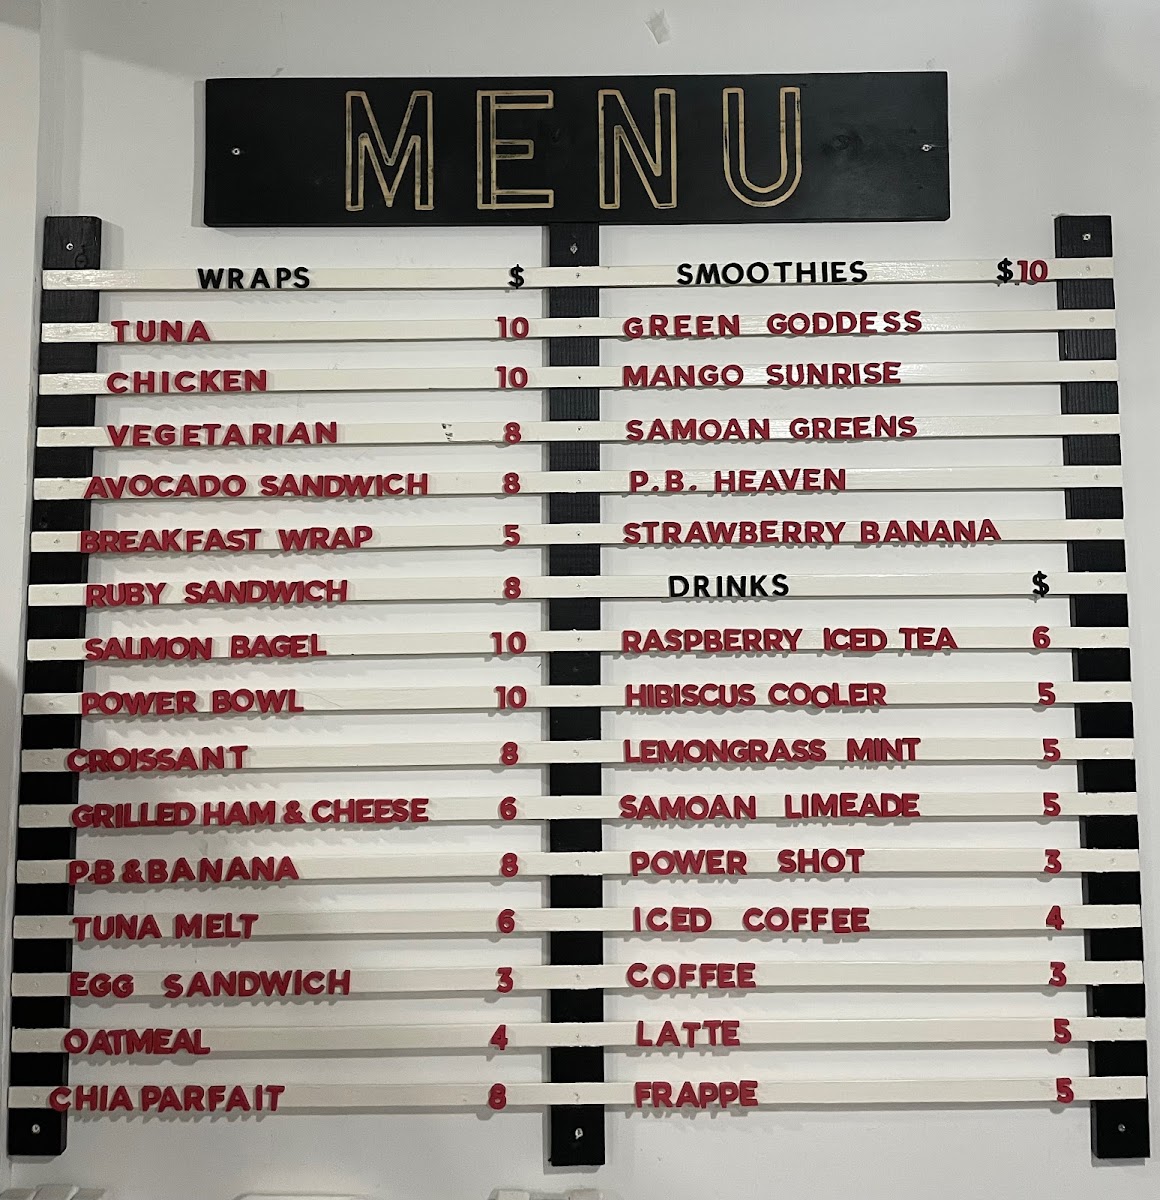 MENU
WRAPS $
TUNA 10
CHICKEN 10
VEGETARIAN 8
AVOCADO SANDWICH 8
BREAKFAST WRAP 5
RUBY SANDWICH 8
SALMON BAGEL 10
POWER BOWL 10
CROISSANT 8
GRILLED HAM & CHEESE 6
P.B & BANANA 8
TUNA MELT 6
EGG SANDWICH 3
OATMEAL 4
CHIA PARFAIT 8
SMOOTHIES $10
GREEN GODDESS
MANGO SUNRISE
SAMOAN GREENS
P.B. HEAVEN
STRAWBERRY BANANA
DRINKS $
RASPBERRY ICED TEA 6
HIBISCUS COOLER 5
LEMONGRASS MINT 5
SAMOAN LIMEADE 5
POWER SHOT 3
ICED COFFEE 4
COFFEE 3
LATTE 5
FRAPPE 5